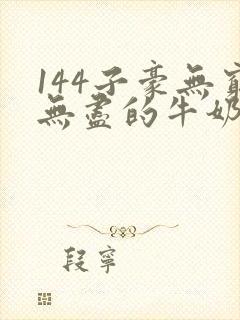 144子豪無窮
無盡的牛奶
段寧